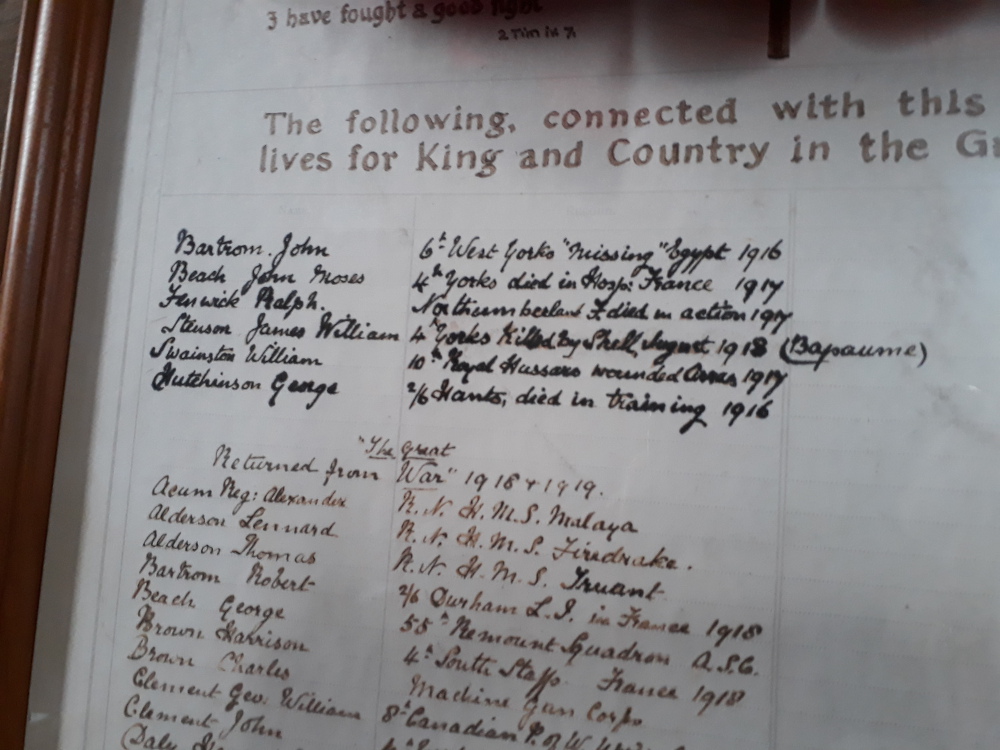 I have fought a good fight
2 Tim iv 7
The following, connected with this
lives for King and Country in the
Bartrom John 6th West Yorks "Missing" Egypt 1916
Beach John Moses 4th Yorks died in Hosp: France 1917
Fenwick Ralph. Northumberland F. died in action 1917
Stenson James William 4th Yorks Killed by Shell, August 1918 (Bapaume)
Swainston William 10th Royal Hussars wounded Arras 1917
Hutchinson George 2/6 Hants, died in training 1916
Returned from "The Great War" 1918 & 1919.
Acum Reg: Alexander R.N. H.M.S. Malaya
Alderson Lennard R.N. H.M.S. Firedrake.
Alderson Thomas R.N. H.M.S. Truant
Bartrom Robert 2/6 Durham L.I. in France 1918
Beach George 55th Remount Squadron A.S.C.
Brown Harrison 4th South Staffs. France 1918
Brown Charles Machine Gun Corps
Clement Geo. William 8th Canadian P. of W.
Clement John
Daly